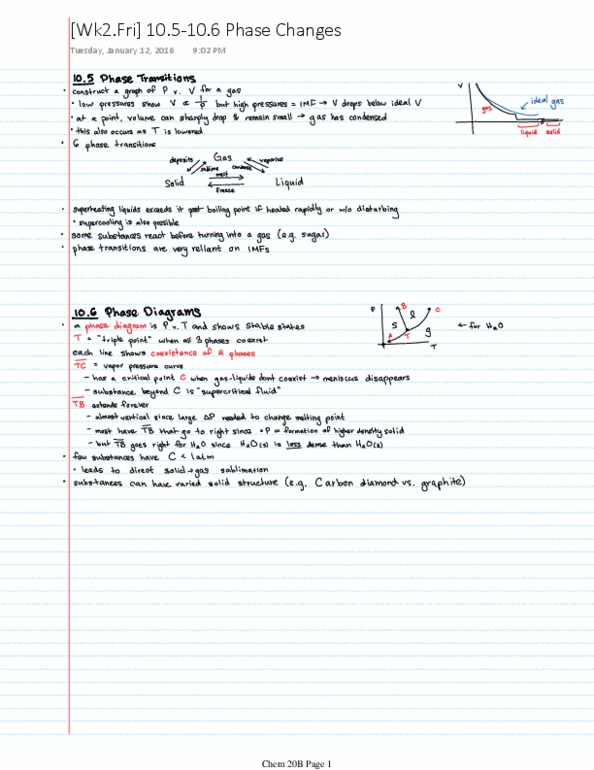 [Wk2.Fri] 10.5-10.6 Phase Changes
Tuesday, January 12, 2016 9:02 PM
10.5 Phase Transitions
• construct a graph of P v. V for a gas
• low pressures show V ∝ 1/P but high pressures = IMF → V drops below ideal V
• at a point, volume can sharply drop & remain small → gas has condensed
• this also occurs as T is lowered
V
gas
ideal gas
liquid solid
• 6 phase transitions
deposits Gas vaporize
sublime condense
melt
Solid Liquid
freeze
• superheating liquids exceeds it past boiling point if heated rapidly or w/o disturbing
• supercooling is also possible
• some substances react before turning into a gas (e.g. sugar)
• phase transitions are very reliant on IMFs
10.6 Phase Diagrams
• a phase diagram is P v. T and shows stable states
T = "triple point" when all 3 phases coexist
each line shows coexistence of 2 phases
P B C
S l g
A T
T
← for H2O
TC = vapor pressure curve
- has a critical point C when gas-liquids dont coexist → meniscus disappears
- substance beyond C is "supercritical fluid"
TB extends forever
- almost vertical since large ΔP needed to change melting point
- most have TB that go to right since ↑P = formation of higher density solid
- but TB goes right for H2O since H2O(s) is less dense than H2O(l)
• few substances have C < 1 atm
• leads to direct solid→gas sublimation
• substances can have varied solid structure (e.g. Carbon diamond vs. graphite)
Chem 20B Page 1